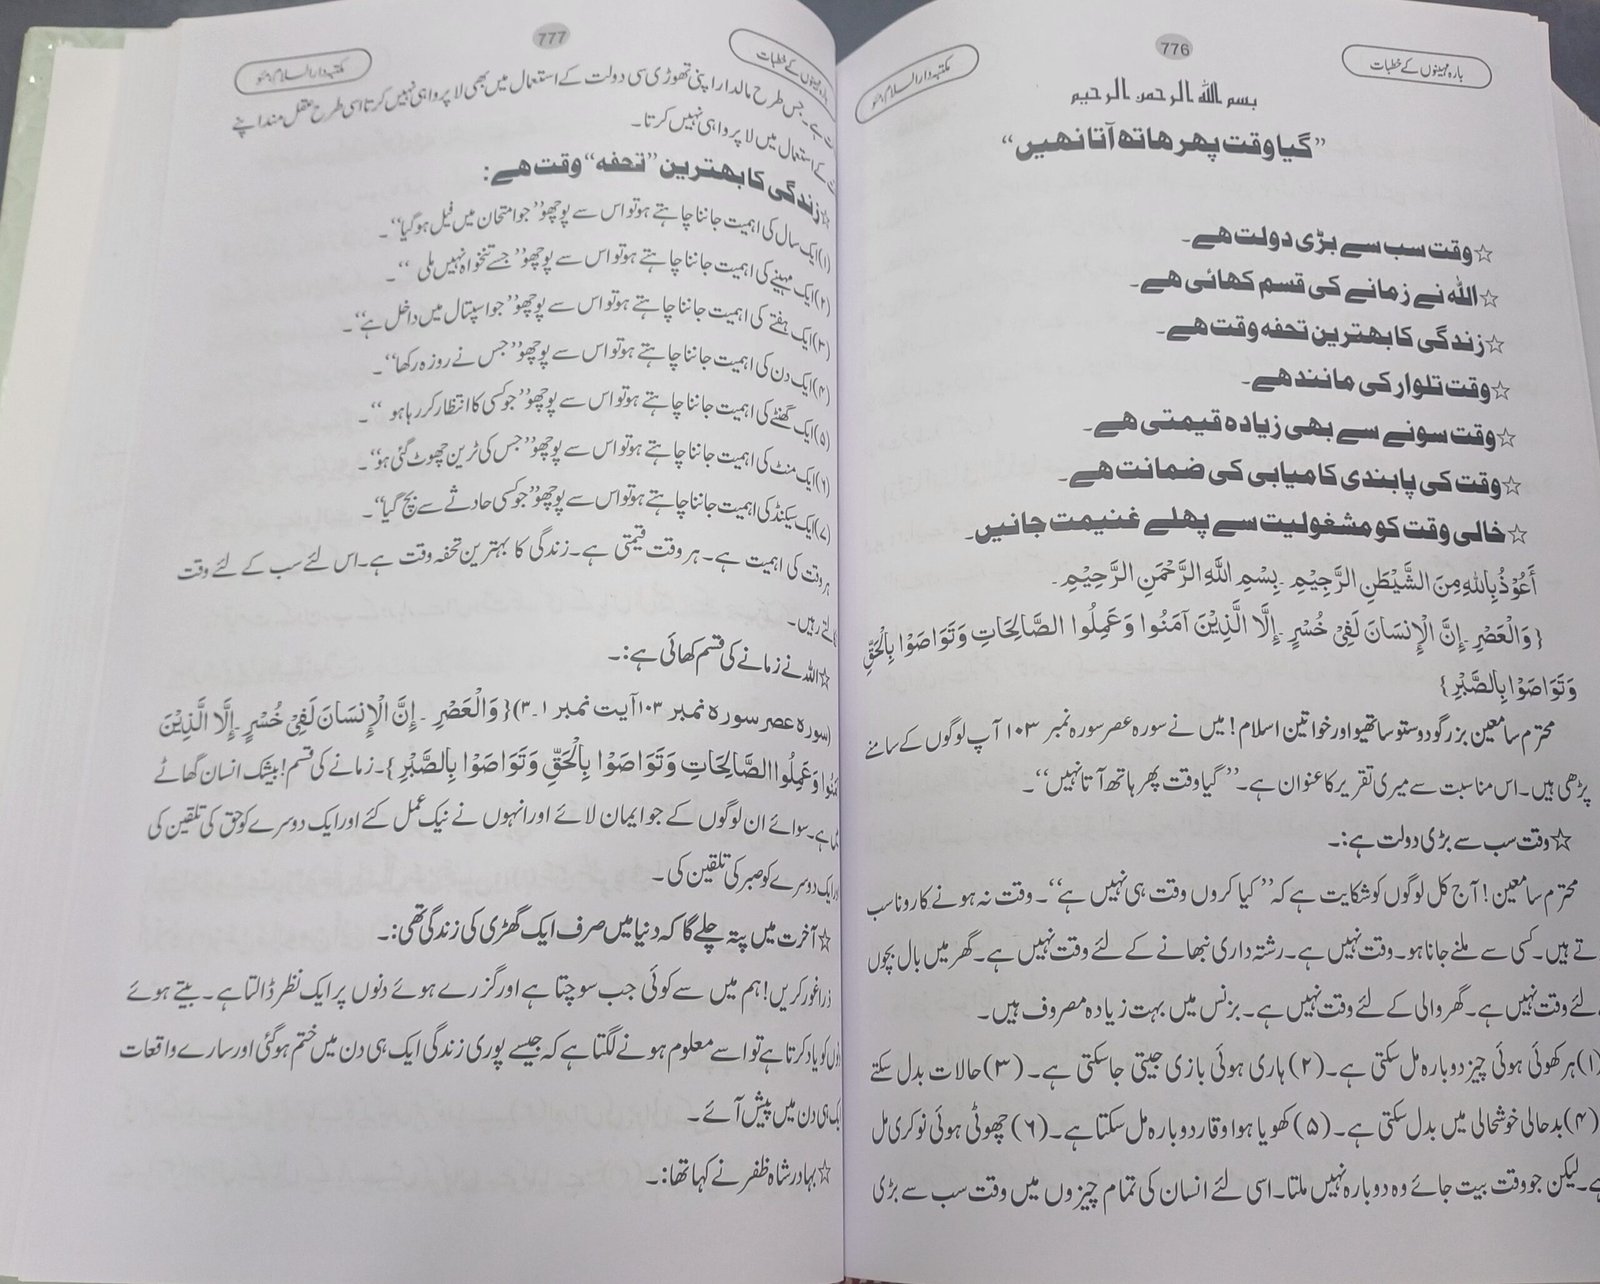 بارہ مہینوں کے خطبات
776
مکتبہ دارالسلام، مئو
بسم اللہ الرحمن الرحیم
”گیا وقت پھر ہاتھ آتا نہیں“
☆وقت سب سے بڑی دولت ہے۔
☆اللہ نے زمانے کی قسم کھائی ہے۔
☆زندگی کا بہترین تحفہ وقت ہے۔
☆وقت تلوار کی مانند ہے۔
☆وقت سونے سے بھی زیادہ قیمتی ہے۔
☆وقت کی پابندی کامیابی کی ضمانت ہے۔
☆خالی وقت کو مشغولیت سے پہلے غنیمت جانیں۔
أَعُوْذُ بِاللهِ مِنَ الشَّيْطٰنِ الرَّجِيْمِ ۔ بِسْمِ اللَّهِ الرَّحْمَنِ الرَّحِيْمِ ۔
{ وَالْعَصْرِ ۔ إِنَّ الْإِنسَانَ لَفِيْ خُسْرٍ ۔ إِلَّا الَّذِيْنَ آمَنُوا وَعَمِلُوا الصَّالِحَاتِ وَتَوَاصَوْا بِالْحَقِّ
وَتَوَاصَوْا بِالصَّبْرِ }
محترم سامعین بزرگو دوستو ساتھیو اور خواتین اسلام! میں نے سورہ عصر سورہ نمبر ۱۰۳ آپ لوگوں کے سامنے
پڑھی ہیں۔ اس مناسبت سے میری تقریر کا عنوان ہے۔ ”گیا وقت پھر ہاتھ آتا نہیں“۔
☆وقت سب سے بڑی دولت ہے:۔
محترم سامعین! آج کل لوگوں کو شکایت ہے کہ ”کیا کروں وقت ہی نہیں ہے“۔ وقت نہ ہونے کا رونا سب
تے ہیں۔ کسی سے ملنے جانا ہو۔ وقت نہیں ہے۔ رشتہ داری نبھانے کے لئے وقت نہیں ہے۔ گھر میں بال بچوں
لئے وقت نہیں ہے۔ گھر والی کے لئے وقت نہیں ہے۔ بزنس میں بہت زیادہ مصروف ہیں۔
(۱) ہر کھوئی ہوئی چیز دوبارہ مل سکتی ہے۔ (۲) ہاری ہوئی بازی جیتی جاسکتی ہے۔ (۳) حالات بدل سکتے
(۴) بدحالی خوشحالی میں بدل سکتی ہے۔ (۵) کھویا ہوا وقار دوبارہ مل سکتا ہے۔ (۶) چھوٹی ہوئی نوکری مل
ہے۔ لیکن جو وقت بیت جائے وہ دوبارہ نہیں ملتا۔ اسی لئے انسان کی تمام چیزوں میں وقت سب سے بڑی
بارہ مہینوں کے خطبات
777
مکتبہ دارالسلام، مئو
ہے۔ جس طرح مالدار اپنی تھوڑی سی دولت کے استعمال میں بھی لاپرواہی نہیں کرتا اسی طرح عقل مند اپنے
کے استعمال میں لاپرواہی نہیں کرتا۔
☆زندگی کا بہترین ”تحفہ“ وقت ہے:
(۱) ایک سال کی اہمیت جاننا چاہتے ہو تو اس سے پوچھو ”جو امتحان میں فیل ہو گیا“۔
(۲) ایک مہینے کی اہمیت جاننا چاہتے ہو تو اس سے پوچھو ”جسے تنخواہ نہیں ملی“۔
(۳) ایک ہفتے کی اہمیت جاننا چاہتے ہو تو اس سے پوچھو ”جو اسپتال میں داخل ہے“۔
(۴) ایک دن کی اہمیت جاننا چاہتے ہو تو اس سے پوچھو ”جس نے روزہ رکھا“۔
(۵) ایک گھنٹے کی اہمیت جاننا چاہتے ہو تو اس سے پوچھو ”جو کسی کا انتظار کر رہا ہو“۔
(۶) ایک منٹ کی اہمیت جاننا چاہتے ہو تو اس سے پوچھو ”جس کی ٹرین چھوٹ گئی ہو“۔
(۷) ایک سیکنڈ کی اہمیت جاننا چاہتے ہو تو اس سے پوچھو ”جو کسی حادثے سے بچ گیا“۔
ہر وقت کی اہمیت ہے۔ ہر وقت قیمتی ہے۔ زندگی کا بہترین تحفہ وقت ہے۔ اس لئے سب کے لئے وقت
رہیں۔
☆اللہ نے زمانے کی قسم کھائی ہے:۔
(سورہ عصر سورہ نمبر ۱۰۳ آیت نمبر ۱۔۳) { وَالْعَصْرِ ۔ إِنَّ الْإِنسَانَ لَفِيْ خُسْرٍ ۔ إِلَّا الَّذِيْنَ
آمَنُوا وَعَمِلُوا الصَّالِحَاتِ وَتَوَاصَوْا بِالْحَقِّ وَتَوَاصَوْا بِالصَّبْرِ }۔ زمانے کی قسم! بیشک انسان گھاٹے
ہے۔ سوائے ان لوگوں کے جو ایمان لائے اور انہوں نے نیک عمل کئے اور ایک دوسرے کو حق کی تلقین کی
اور ایک دوسرے کو صبر کی تلقین کی۔
☆آخرت میں پتہ چلے گا کہ دنیا میں صرف ایک گھڑی کی زندگی تھی:۔
ذرا غور کریں! ہم میں سے کوئی جب سوچتا ہے اور گزرے ہوئے دنوں پر ایک نظر ڈالتا ہے۔ بیتے ہوئے
کو یاد کرتا ہے تو اسے معلوم ہونے لگتا ہے کہ جیسے پوری زندگی ایک ہی دن میں ختم ہوگئی اور سارے واقعات
ایک ہی دن میں پیش آئے۔
☆بہادر شاہ ظفر نے کہا تھا:۔